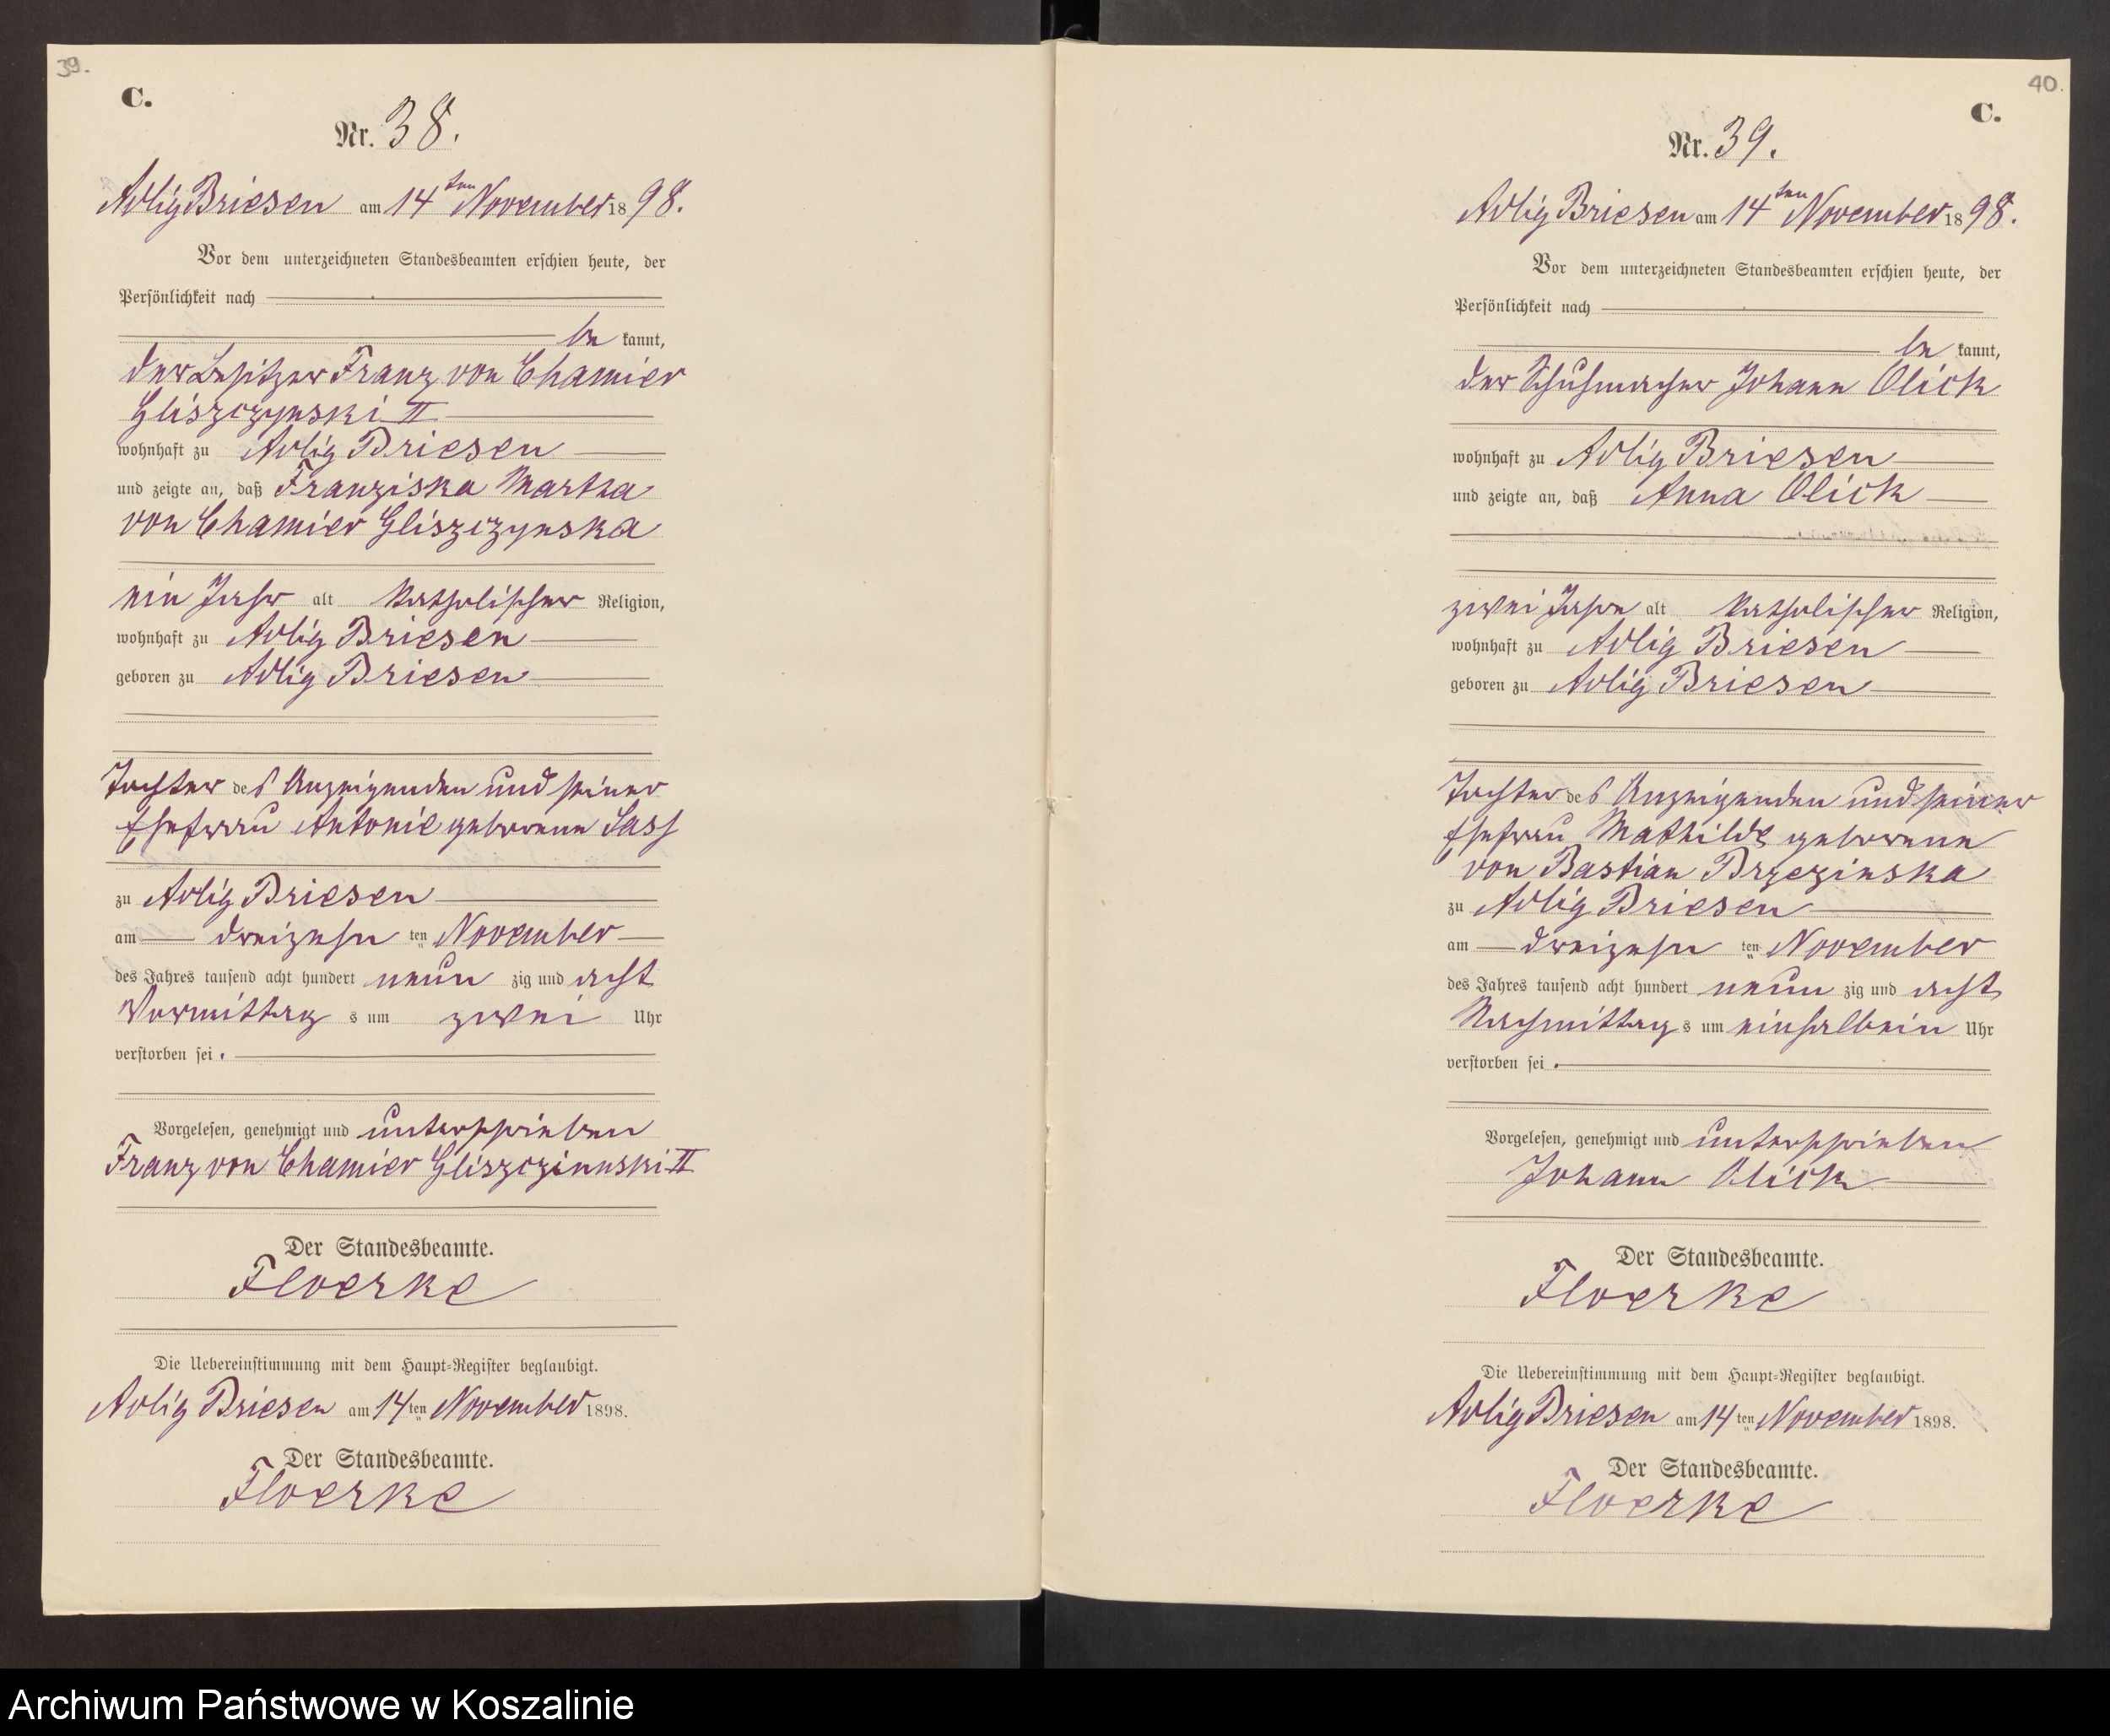 39.
C.
Nr. 38.
Adlig Briesen am 14ten November 1898.
Vor dem unterzeichneten Standesbeamten erschien heute, der
Persönlichkeit nach
be kannt,
der Besitzer Franz von Chamier
Gliszczynski II
wohnhaft zu Adlig Briesen
und zeigte an, daß Franziska Martha
von Chamier Gliszczynska
ein Jahr alt katholischer Religion,
wohnhaft zu Adlig Briesen
geboren zu Adlig Briesen
Tochter des Anzeigenden und seiner
Ehefrau Antonie geborene Sass
zu Adlig Briesen
am dreizehn ten November
des Jahres tausend acht hundert neun zig und acht
Vormittag s um zwei Uhr
verstorben sei.
Vorgelesen, genehmigt und unterschrieben
Franz von Chamier Gliszczinnski II
Der Standesbeamte.
Floerke
Die Uebereinstimmung mit dem Haupt-Register beglaubigt.
Adlig Briesen am 14ten November 1898.
Der Standesbeamte.
Floerke
40.
C.
Nr. 39.
Adlig Briesen am 14ten November 1898.
Vor dem unterzeichneten Standesbeamten erschien heute, der
Persönlichkeit nach
be kannt,
der Schuhmacher Johann Olick
wohnhaft zu Adlig Briesen
und zeigte an, daß Anna Olick
zwei Jahre alt katholischer Religion,
wohnhaft zu Adlig Briesen
geboren zu Adlig Briesen
Tochter des Anzeigenden und seiner
Ehefrau Mathilde geborene
von Bastian Brzezinska
zu Adlig Briesen
am dreizehn ten November
des Jahres tausend acht hundert neun zig und acht
Nachmittag s um einhalbein Uhr
verstorben sei.
Vorgelesen, genehmigt und unterschrieben
Johann Olick
Der Standesbeamte.
Floerke
Die Uebereinstimmung mit dem Haupt-Register beglaubigt.
Adlig Briesen am 14ten November 1898.
Der Standesbeamte.
Floerke
Archiwum Państwowe w Koszalinie